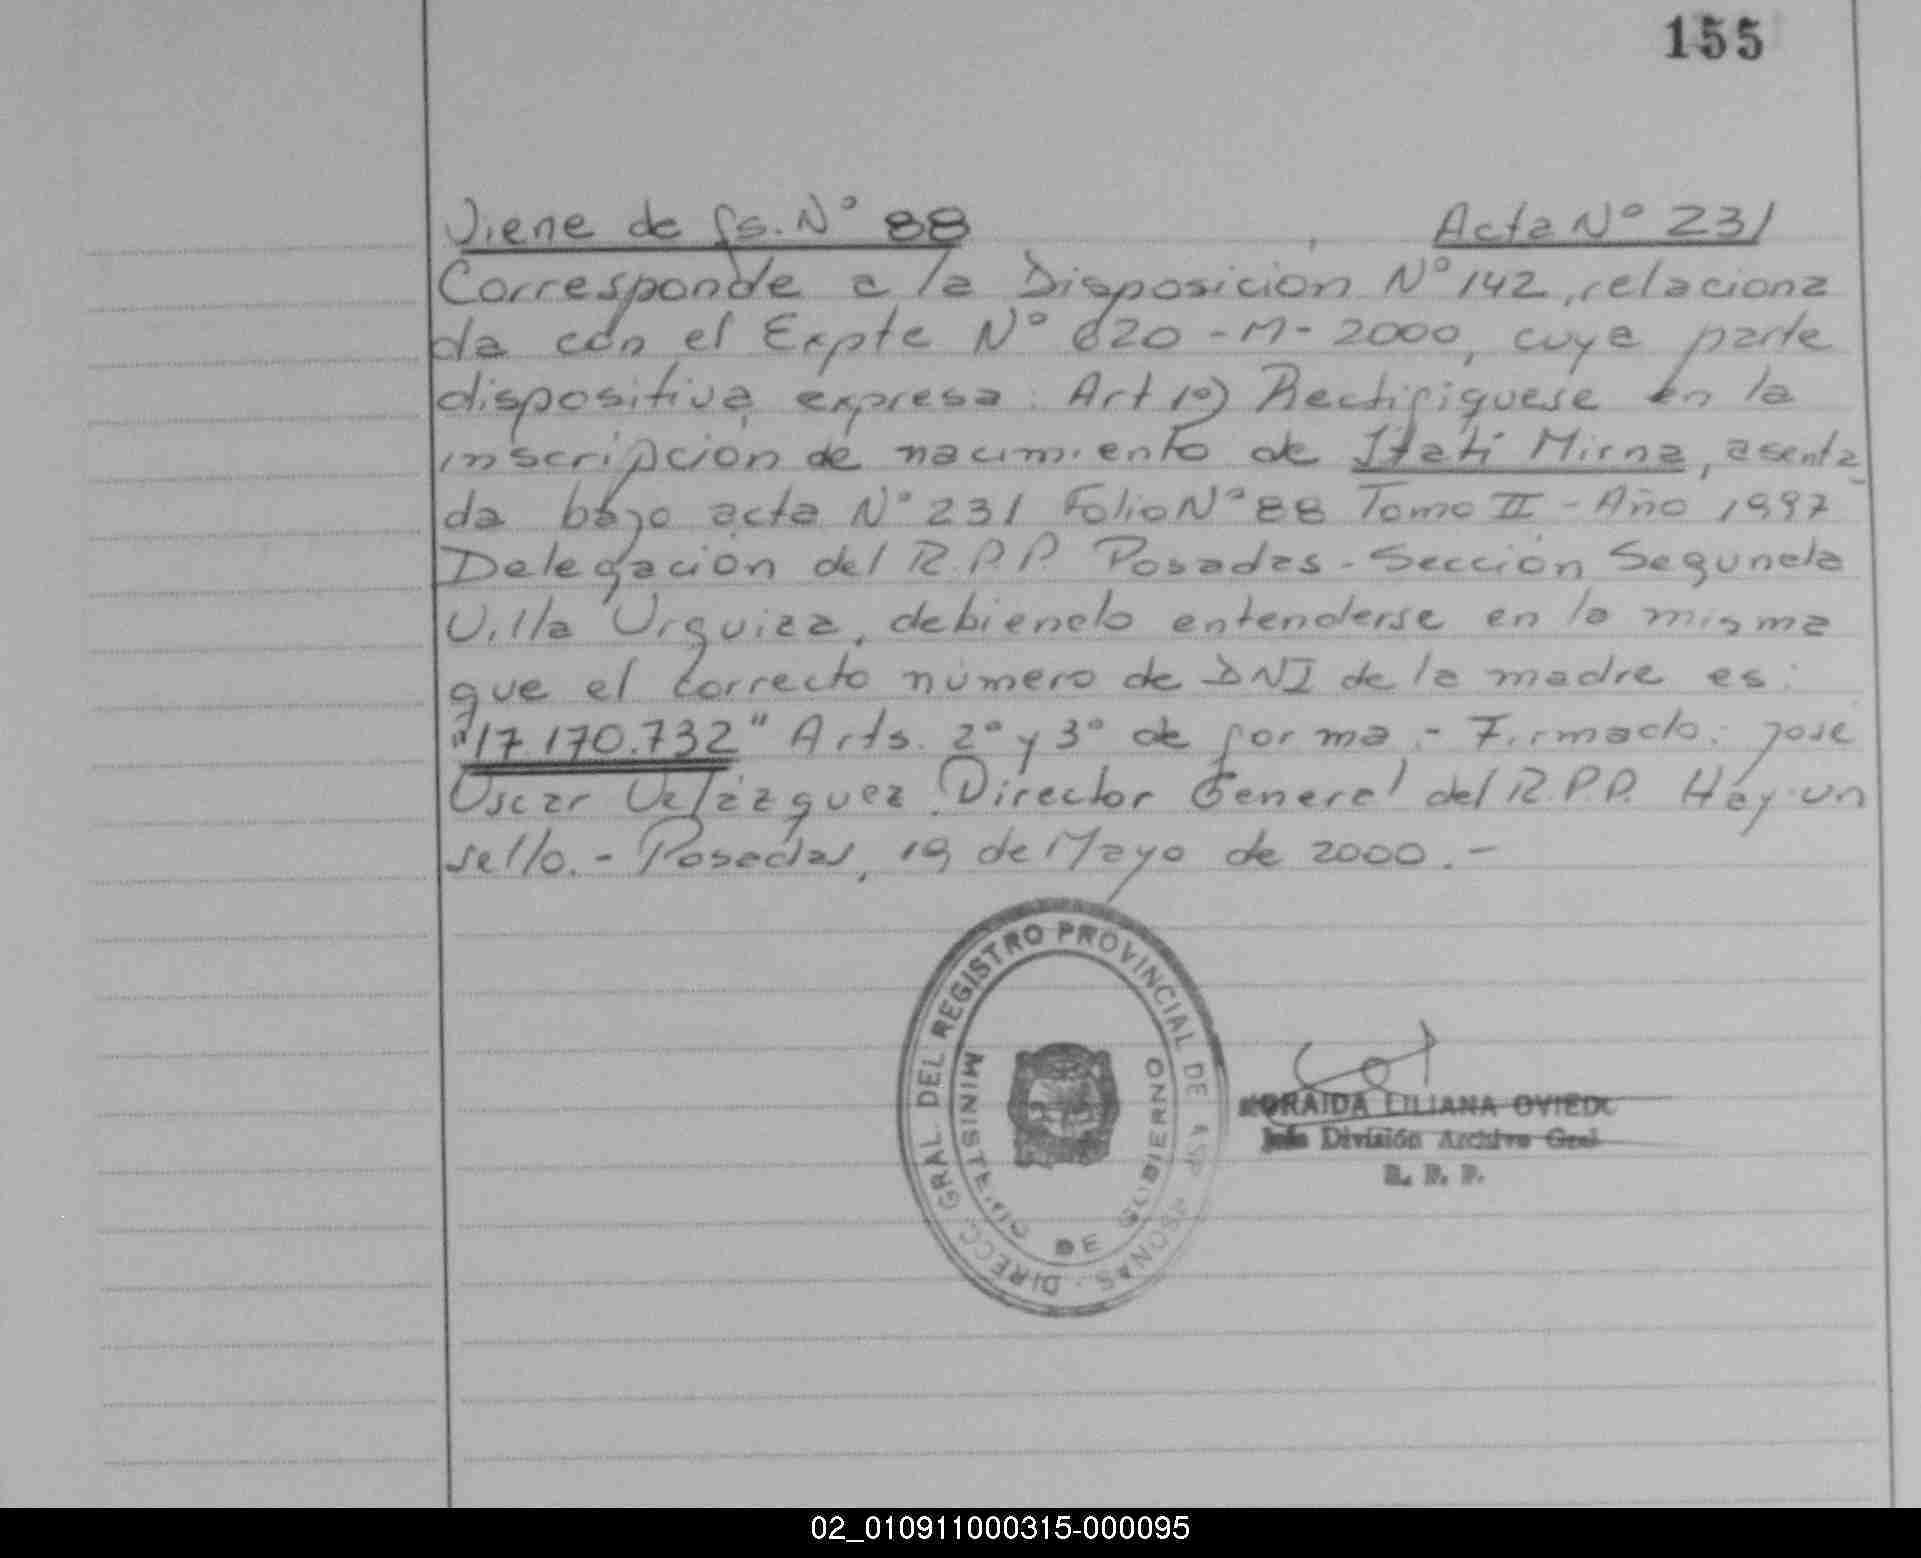 155
Viene de fs. Nº 88 Acta Nº 231
Corresponde a la Disposición Nº 142, relaciona
da con el Expte Nº 620-M-2000, cuya parte
dispositiva expresa: Art 1º) Rectifiquese en la
inscripción de nacimiento de Itati Mirna, asenta
da bajo acta Nº 231 Folio Nº 88 Tomo II - Año 1997
Delegación del R.P.P Posadas - Sección Segunda
Villa Urquiza, debiendo entenderse en la misma
que el correcto número de DNI de la madre es:
"17.170.732" Arts. 2º y 3º de forma.- Firmado: José
Oscar Velázquez Director General del R.P.P. Hay un
sello.- Posadas, 19 de Mayo de 2000.-
DIRECC. GRAL. DEL REGISTRO PROVINCIAL DE
MINISTERIO DE GOBIERNO
LILIANA OVIEDO
División Archivo Gral
R. P. P.
02_010911000315-000095